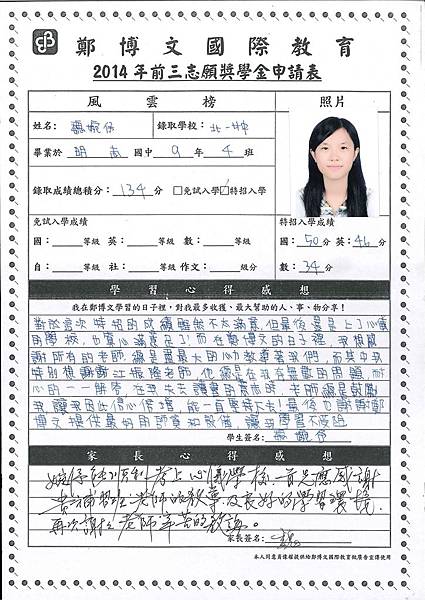 鄭博文國際教育
2014年前三志願獎學金申請表
風雲榜 照片
姓名： 錄取學校：北一女中
畢業於 明志 國中 9 年 4 班
錄取成績總積分：134 分 □免試入學 ☑特招入學
免試入學成績 特招入學成績
國：等級 英：等級 數：等級 國：50分 英：46分
自：等級 社：等級 作文：級分 數：34分
學習心得感想
我在鄭博文學習的日子裡，對我最多收獲、最大幫助的人、事、物分享！
對於這次特招的成績雖然不太滿意，但最後還是上了心儀
的學校，也算心滿意足了！而在鄭博文的日子裡，我很感
謝所有的老師總是盡最大的心力教導著我們，而其中我
特別想謝謝江振隆老師，他總是在我有無數的問題，耐
心的一一解答，在我失去讀書的衝勁時，老師總是鼓勵
我，讓我因此信心倍增，能一直堅持下去！最後也謝謝鄭
博文提供最好的師資和設備，讓我
學生簽名：
家長心得感想
婉伃能順利考上心儀學校，首先應感謝
貴補習班老師的教導及良好的學習環境，
再次謝謝老師辛苦的教誨。
家長簽名：
本人同意肖像權提供給鄭博文國際教育做廣告宣傳使用